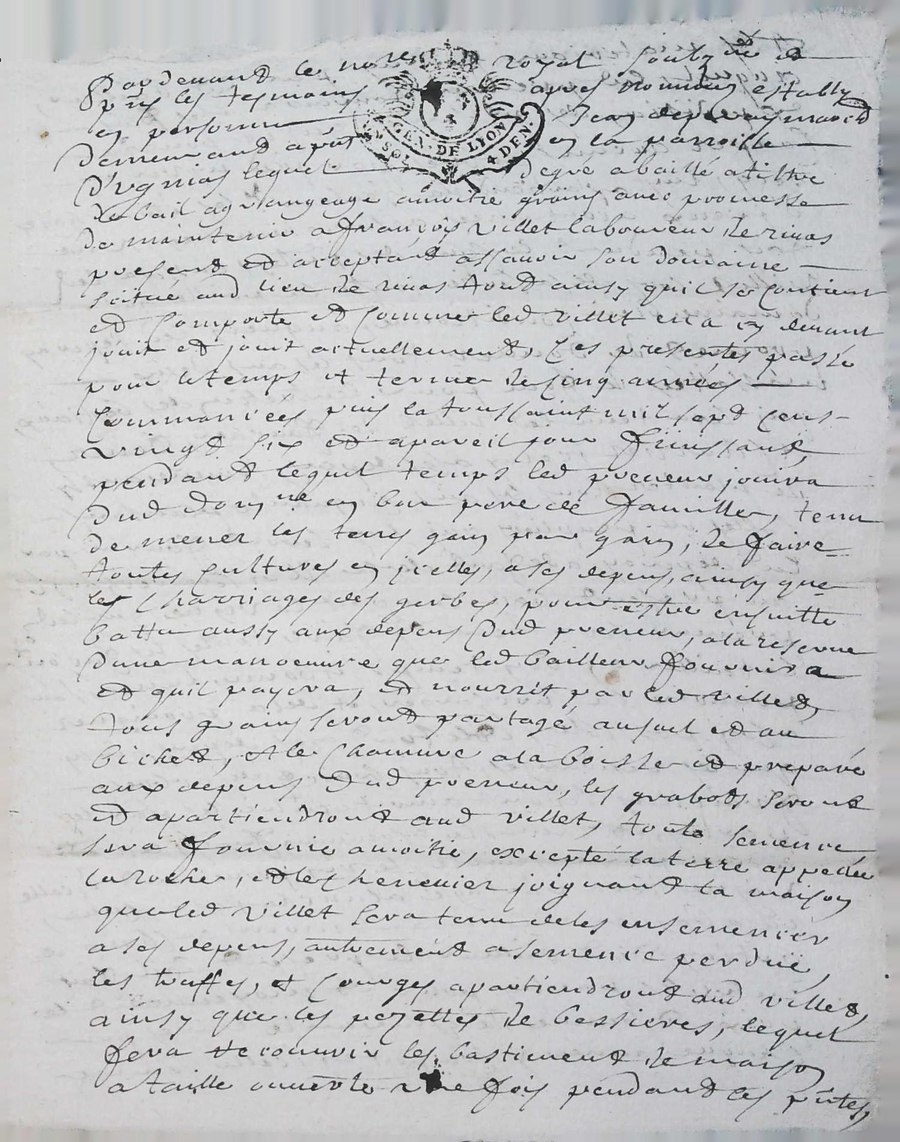 Pardevant le no.re royal soubz.né et
pnts les tesmoins apres nommés estably
en personne Jean
demeurand en la parroisse
D'ugnias lequel degré a baillé a tiltre
de bail agrangeage a moitié grains avec promesse
de maintenir a françois villet laboureur de rivas
present et acceptant assavoir son domaine
scitué aud lieu de rivas tout ainsy quil se contient
et comporte et comme led villet en a cy devant
jouit et jouit actuellement, ces presentes passé
pour le temps et terme de cinq années
commancées puis la toussaint mil sept cens
vingt six et a pareil jour finissant,
pendant lequel temps led preneur jouira
dud dom.ne en bon pere de famille, tenu
de mener les terres gain pour gain, de faire
toutes cultures en jcelles, a ses depens, ainsy que
les charriages des gerbes, pour estre ensuitte
battu aussy aux depens dud preneur, a la reserve
dune manoeuvre que led bailleur fournira
et quil payera, et nourrit par led villet,
tous grains seront partagé au suel et au
bichet, et le chanvre a la boisse et preparé
aux depens dud preneur, les grabots seront
et apartiendront aud villet, toute semence
sera fournie a moitié, excepté la terre appellée
la roche, et le chenevier joignant la maison
que led villet sera tenu de les ensemencer
a ses depens, autrement a semence perdue,
les truffes, et courges apartiendront aud villet,
ainsy que les pezettes de bessieres, lequel
fera recouvrir les bastiment de maison
a taille ouverte une fois pendant les pntes,
GEN. DE LYON
4 DEN.